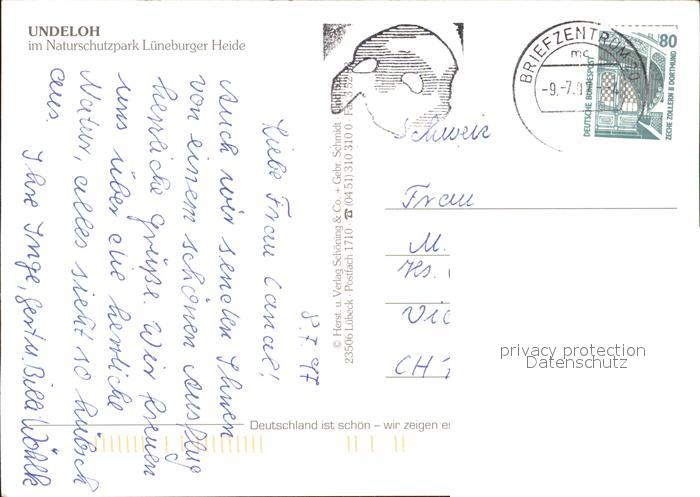 UNDELOH
im Naturschutzpark Lüneburger Heide
8.7.97
Liebe Frau Cancel!
Auch wir senden Ihnen
von einem schönen Ausflug
herzliche Grüße. Wir freuen
uns über die herrliche
Natur, alles sieht so hübsch
aus
Ihre Inge, Gert u. Billa Wölk
© Herst. u. Verlag Schöning & Co. + Gebr. Schmidt
23506 Lübeck · Postfach 1710 · ☎ (04 51) 310 310 0
BRIEFZENTRUM
mc
-9.-7.9
80
DEUTSCHE BUNDESPOST
ZECHE ZOLLERN II DORTMUND
Schweiz
Frau
M.
Hs.
Vic
CH
privacy protection
Datenschutz
Deutschland ist schön – wir zeigen es